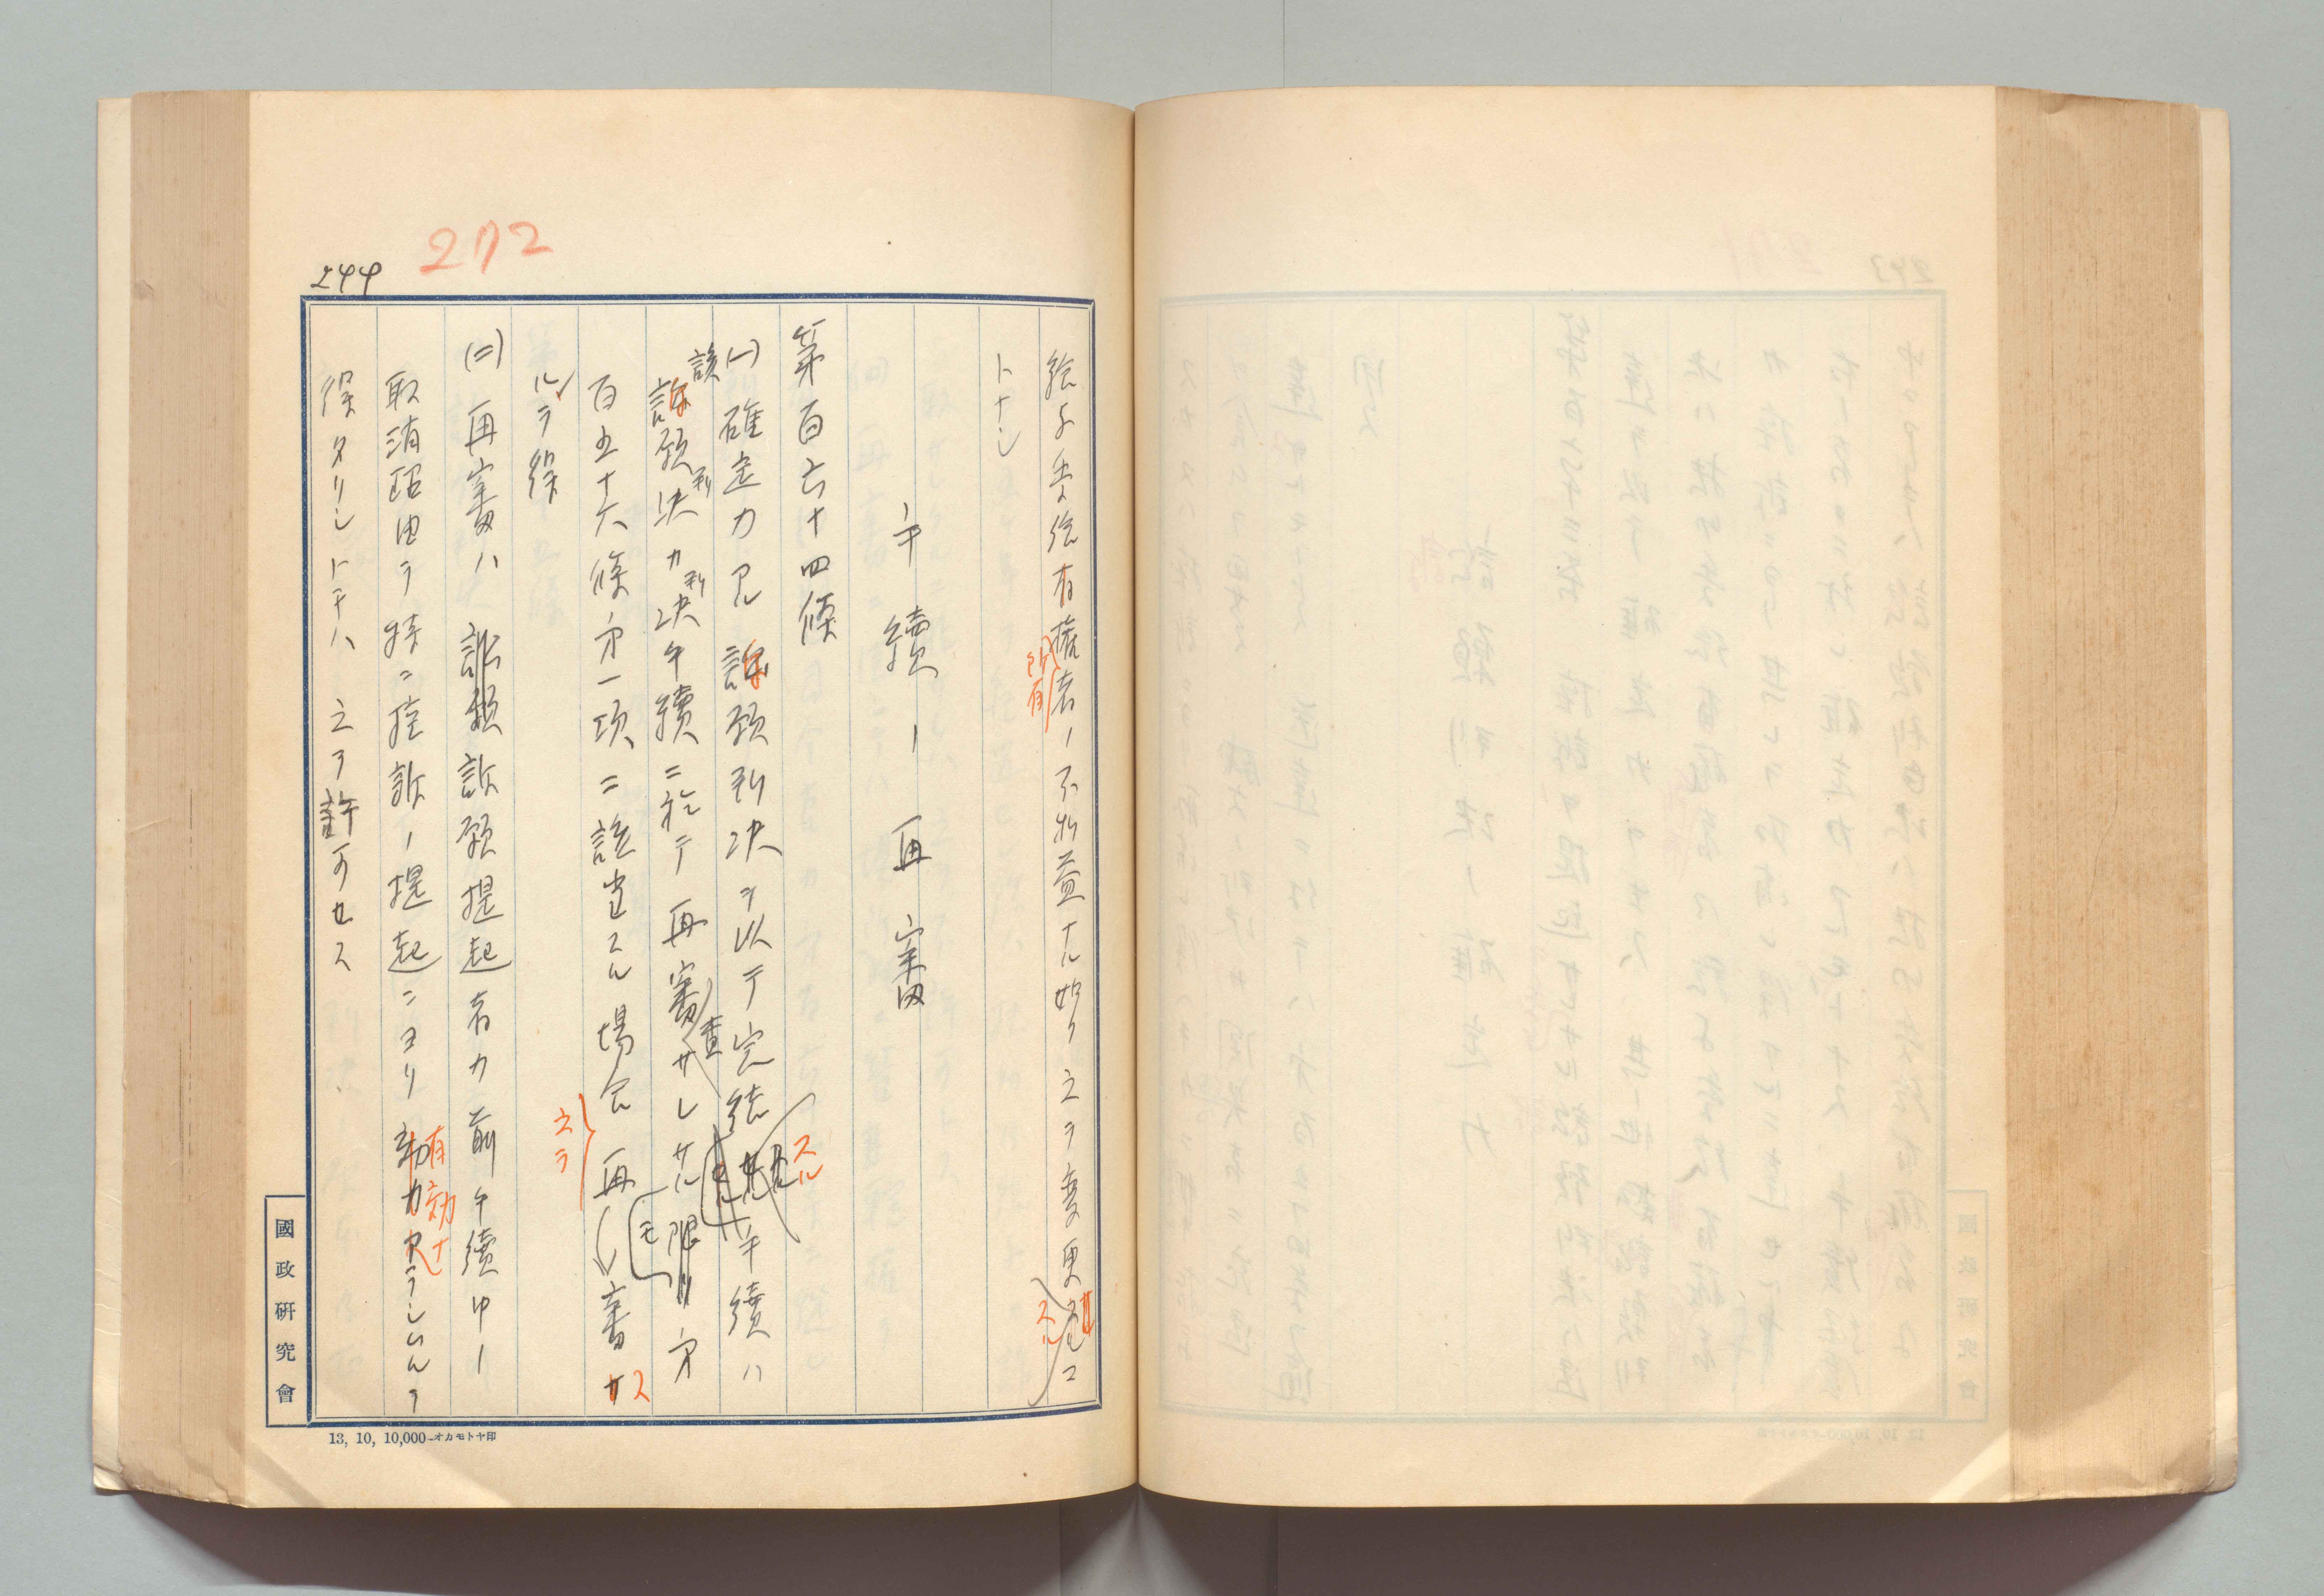 272
244
給与受給有権者ノ不利益ナル如ク之ヲ変更セルコ
所有
スル
トナシ
手續ノ再審
第百六十四條
(一)確定力アル訴願判決ヲ以テ完結セル手續ハ
スル
該訴願判決カ判決手續ニ於テ再審サレサル限リ第
査
モ
百五十六條第一項ニ該当スル場合再審サ
ス
ルヲ得
(二)再審ハ訴願提起者カ前手續中ノ
取消理由ヲ特ニ控訴ノ提起ニヨリ効力アラシムルヲ
有効ナ
得タリシトキハ之ヲ許可セス
國政研究會
13, 10, 10,000-オカモトヤ印